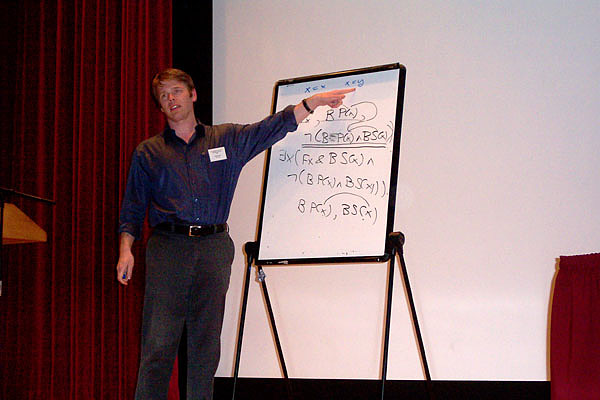 x = x x = y
x, BP(x),
¬(BP(x) ∧ BS(x))
∃x(Fx & BS(x) ∧
¬(BP(x) ∧ BS(x)))
BP(x), BS(x)